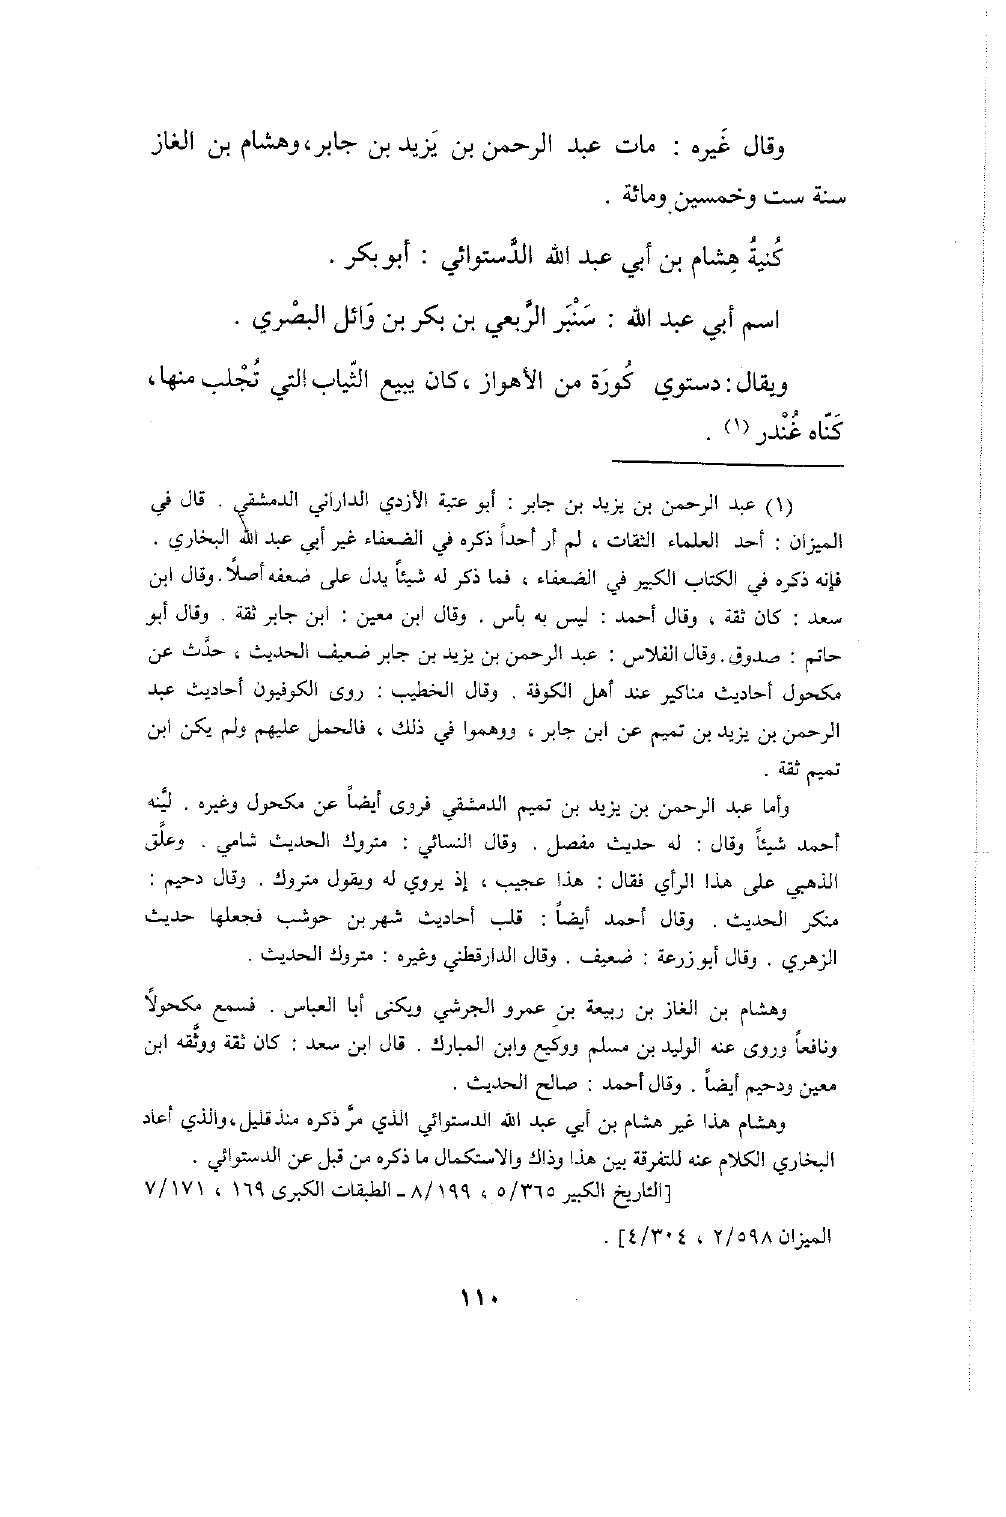 وقال غَيره : مات عبد الرحمن بن يَزيد بن جابر، وهشام بن الغاز
سنة ست وخمسين ومائة .
كُنيةُ هِشام بن أبي عبد الله الدُّستوائي : أبو بكر .
اسم أبي عبد الله : سَنْبَر الرَّبعي بن بكر بن وَائل البصْري .
ويقال : دستوي كُورَة من الأهواز ، كان يبيع الثّياب التي تُجْلب منها ،
كَنّاه غُنْدر (١) .
(١) عبد الرحمن بن يزيد بن جابر : أبو عتبة الأزدي الداراني الدمشقي . قال في
الميزان : أحد العلماء الثقات ، لم أر أحداً ذكره في الضعفاء غير أبي عبد الله البخاري .
فإنه ذكره في الكتاب الكبير في الضعفاء ، فما ذكر له شيئاً يدل على ضعفه أصلاً . وقال ابن
سعد : كان ثقة ، وقال أحمد : ليس به بأس . وقال ابن معين : ابن جابر ثقة . وقال أبو
حاتم : صدوق . وقال الفلاس : عبد الرحمن بن يزيد بن جابر ضعيف الحديث ، حدَّث عن
مكحول أحاديث مناكير عند أهل الكوفة . وقال الخطيب : روى الكوفيون أحاديث عبد
الرحمن بن يزيد بن تميم عن ابن جابر ، ووهموا في ذلك ، فالحمل عليهم ولم يكن ابن
تميم ثقة .
وأما عبد الرحمن بن يزيد بن تميم الدمشقي فروى أيضاً عن مكحول وغيره . ليَّنه
أحمد شيئاً وقال : له حديث مفصل . وقال النسائي : متروك الحديث شامي . وعلَّق
الذهبي على هذا الرأي فقال : هذا عجيب ، إذ يروي له ويقول متروك . وقال دحيم :
منكر الحديث . وقال أحمد أيضاً : قلب أحاديث شهر بن حوشب فجعلها حديث
الزهري . وقال أبو زرعة : ضعيف . وقال الدارقطني وغيره : متروك الحديث .
وهشام بن الغاز بن ربيعة بن عمرو الجرشي ويكنى أبا العباس . فسمع مكحولاً
ونافعاً وروى عنه الوليد بن مسلم ووكيع وابن المبارك . قال ابن سعد : كان ثقة ووثَّقه ابن
معين ودحيم أيضاً . وقال أحمد : صالح الحديث .
وهشام هذا غير هشام بن أبي عبد الله الدستوائي الذي مرَّ ذكره منذ قليل ، والذي أعاد
البخاري الكلام عنه للتفرقة بين هذا وذاك والاستكمال ما ذكره من قبل عن الدستوائي .
[التاريخ الكبير ٥/٣٦٥ ، ٨/١٩٩ ـ الطبقات الكبرى ١٦٩ ، ٧/١٧١
الميزان ٢/٥٩٨ ، ٤/٣٠٤] .
١١٠